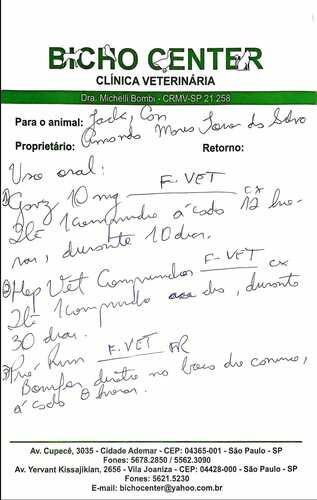 BICHO CENTER
CLÍNICA VETERINÁRIA
Dra. Michelli Bombi - CRMV-SP 21.258
Para o animal: Jack, Con
Proprietário: Amanda
Retorno:
Uso oral:
1) 10 mg F. VET cx
1 comprimido a cada 12 ho-
ras, durante 10 dias.
2) Hep Vet Comprimidos F. VET cx
1 comprimido dia, durante
30 dias.
3) Pró Rum F. VET FR
Borrifar direto na boca do
a cada 8 horas.
Av. Cupecê, 3035 - Cidade Ademar - CEP: 04365-001 - São Paulo - SP
Fones: 5678.2850 / 5562.3090
Av. Yervant Kissajikian, 2656 - Vila Joaniza - CEP: 04428-000 - São Paulo - SP
Fones: 5621.5230
E-mail: bichocenter@yahoo.com.br